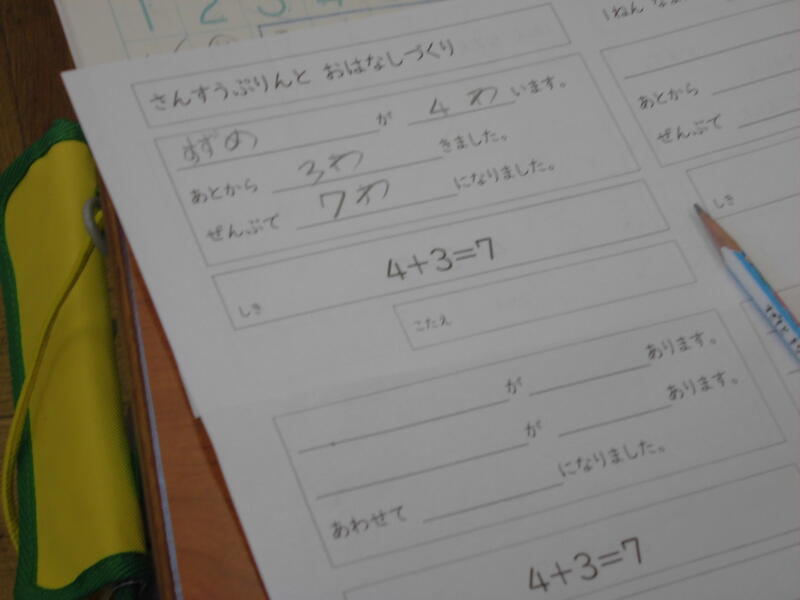 1 2 3 4
さんすうぷりんと おはなしづくり
すずめ が 4わ います。
あとから 3わ きました。
ぜんぶで 7わ になりました。
しき 4+3=7
こたえ
が あります。
が あります。
あわせて になりました。
4+3=7
1ねん
あとから
ぜんぶで
しき